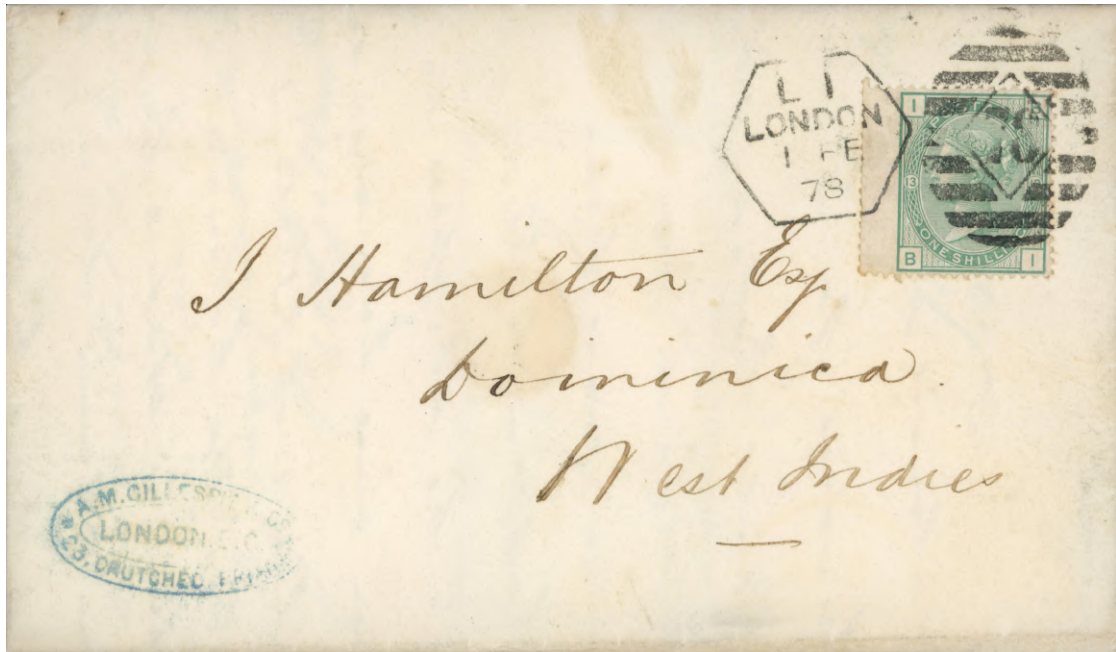 L 1
LONDON
1 FE
78
I
13
ONE SHILLING
B I
J Hamilton Esq
Dominica.
West Indies
A. M. GILLESPIE & Co
LONDON. E. C.
23, CRUTCHED FRIARS